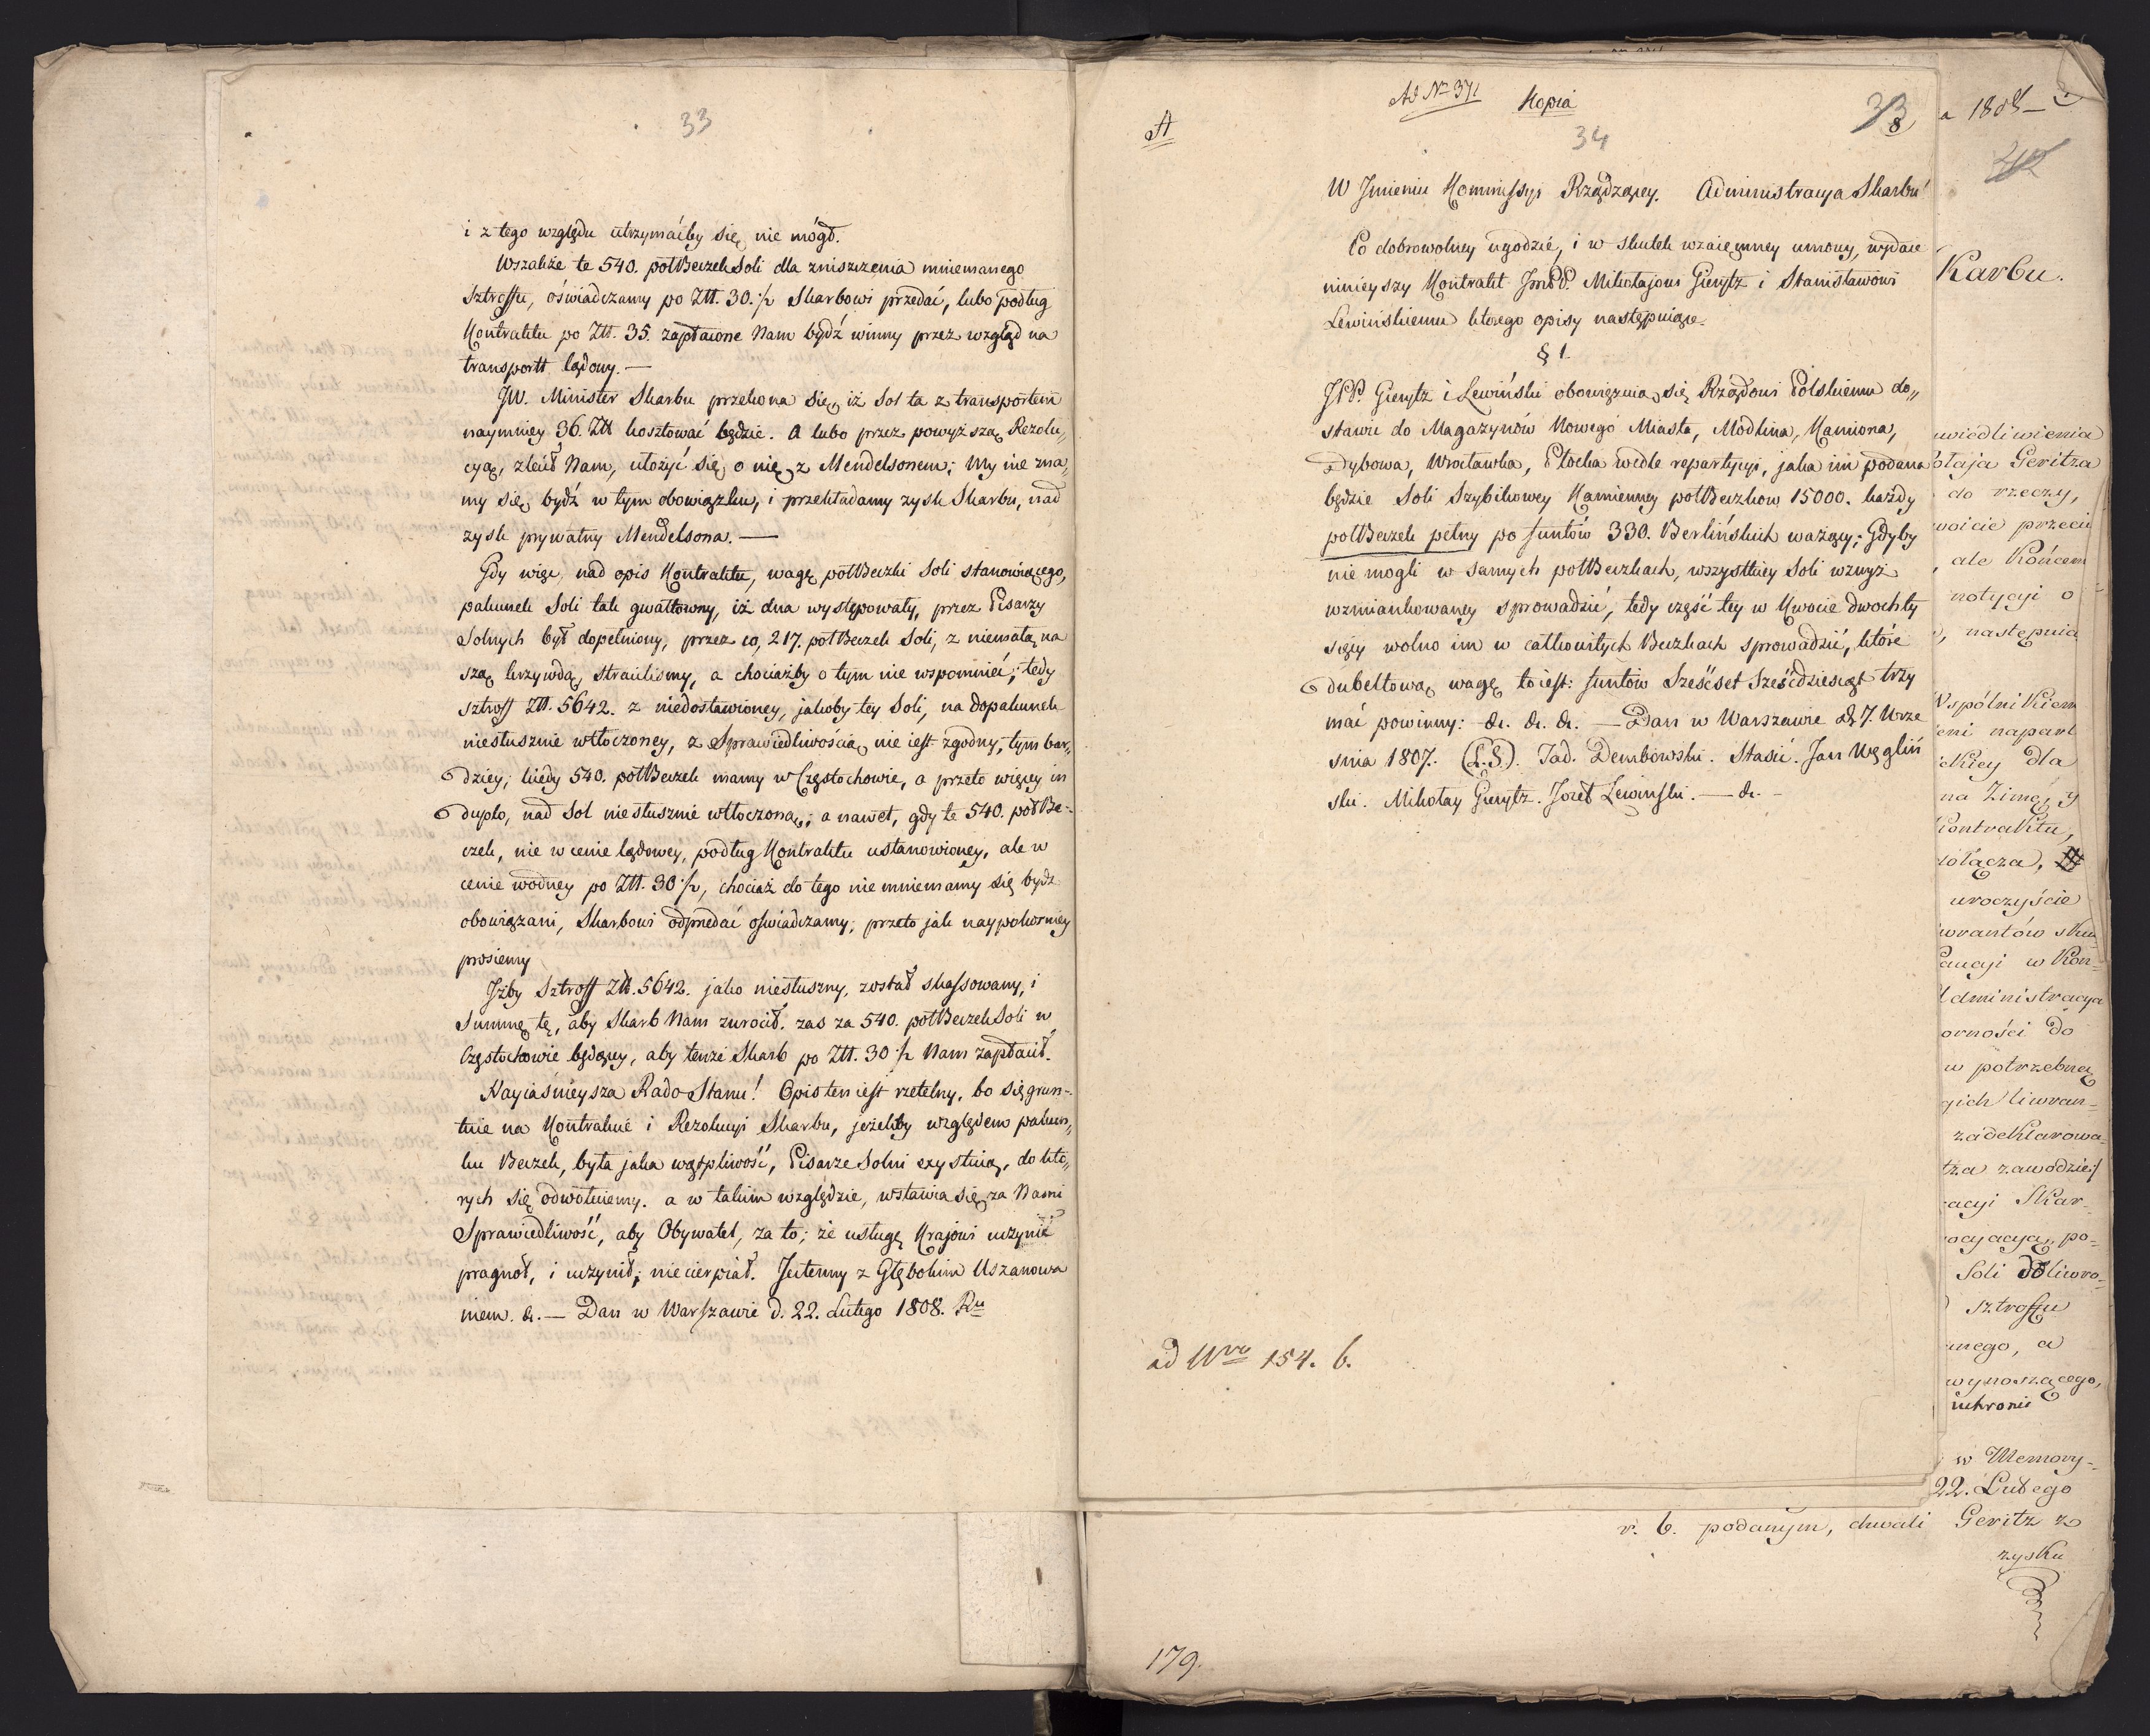 33
i z tego względu utrzymaćby się nie mógł.
Wszakże te 540. półBeczek Soli dla zniszczenia mniemanego
Sztroffu, oświadczamy po Złł. 30. ½ Skarbowi przedać, lubo podług
Kontraktu po Złł. 35. zapłacone Nam bydź winny przez wzgląd na
transportt lądowy. —
JW. Minister Skarbu przekona się, iż Sol ta z transportem
naymniey 36. Złł kosztować będzie. A lubo przez powyższą Rezolu„
cyą, zlecił Nam, ułożyć się o nię z Mendelsonem; My nie zna„
my się bydź w tym obowiązku, i przekładamy zysk Skarbu, nad
zysk prywatny Mendelsona. —
Gdy więc, nad opis Kontraktu, wagę półBeczki Soli stanowiącego,
pakunek Soli tak gwałtowny, iż dna występowały, przez Pisarzy
Solnych był dopełniony, przez co, 217. półBeczek Soli, z niemałą na
szą krzywdą, straciliśmy, a chociażby o tym nie wspomnieć; tedy
sztroff Złł. 5642. z niedostawioney, jakoby tey Soli, na dopakunek
niesłusznie wtłoczoney, z Sprawiedliwością nie iest zgodny, tym bar„
dziey, kiedy 540. półBeczek mamy w Częstochowie, a przeto więcey in
duplo, nad Sol niesłusznie wtłoczoną; a nawet, gdy te 540. półBe-
czek, nie w cenie lądowey, podług Kontraktu ustanowioney, ale w
cenie wodney po Złł. 30 ½, chociaż do tego nie mniemamy się bydz
obowiązani, Skarbowi odprzedać oswiadczamy; przeto jak naypokorniey
prosiemy
Jżby Sztroff Złł. 5642. jako niesłuszny, został skassowany, i
Summę tę, aby Skarb Nam zwrócił. zas za 540. półBeczek Soli w
Częstochowie będącey, aby tenże Skarb po Złł. 30 ½ Nam zapłacił.
Nayiaśnieysza Rado Stanu! Opis ten iest rzetelny, bo się grun-
tuie na Kontrakcie i Rezolucyi Skarbu, jeżeliby względem pakun„
ku Beczek, była jaka wątpliwość, Pisarze Solni exystuią, do któ„
rych się odwołuiemy. a w takim względzie, wstawia się za Nami
Sprawiedliwość, aby Obywatel, za to; że usługę Krajowi uczynić
pragnoł, i uczynił, nie cierpiał. Jstemy z Głębokim Uszanowa
niem. &. — Dan w Warszawie d. 22. Lutego 1808. Ru
Ad Nr 371
Kopia
A
33
8
34
W Jmieniu Kommissyi Rządzącey. Administracya Skarbu
Po dobrowolney ugodzie, i w skutek wzaięmney umowy, wydaie
ninieyszy Kontrakt JmPP. Mikołajowi Gierytz i Stanisławowi
Lewińskiemu którego opisy następuiące
§ 1.
JPP. Gierytz i Lewiński obowięzuią się Rządowi Polskiemu do„
stawić do Magazynów Nowego Miasta, Modlina, Kamiona,
Dybowa, Wrocławka, Płocka wedle repartycyi, jaka im podana
będzie Soli Szybikowey Kamienney półBeczkow 15000. każdy
półBeczek pełny po funtów 330. Berlińskich ważący; Gdyby
nie mogli w samych półBeczkach, wszystkiey Soli wzwyż
wzmiankowaney sprowadzić, tedy część tey w Kwocie dwochty
sięcy wolno im w całkowitych Beczkach sprowadzić, które
dubeltową wagę toiest: funtów Sześćset Sześćdziesiąt trzy
mać powinny: &. &. &. — Dan w Warszawie d. 7. Wrze
snia 1807. (L.S.). Tad. Dembowski. Stasic. Jan Węgliń
ski. Mikołay Gierytz. Jozef Lewinski. — &. -
ad Nro 154. b.
179.
a 1808
42
Karbu.
wiedliwienia
ołaja Geritza
do rzeczy,
woicie przeciw
, ale Końcem
notycyi o
, następnia
Wspólnikiem
eni napart
ckiey dla
na Zimę, y
Kontraktu,
iołącza,
uroczyście
iwrantów sku
Caucyi w Kon-
Administracya
orności do
w potrzebną
ych liwran-
zadeklarowa-
tza zawodziey
acyi Skar-
ocyacyą, po-
Soli do liwro-
sztroffu
nego, a
wynoszącego,
uchronić
w Memory-
22. Lutego
r. b. podanym, chwali Geritz z
zysku